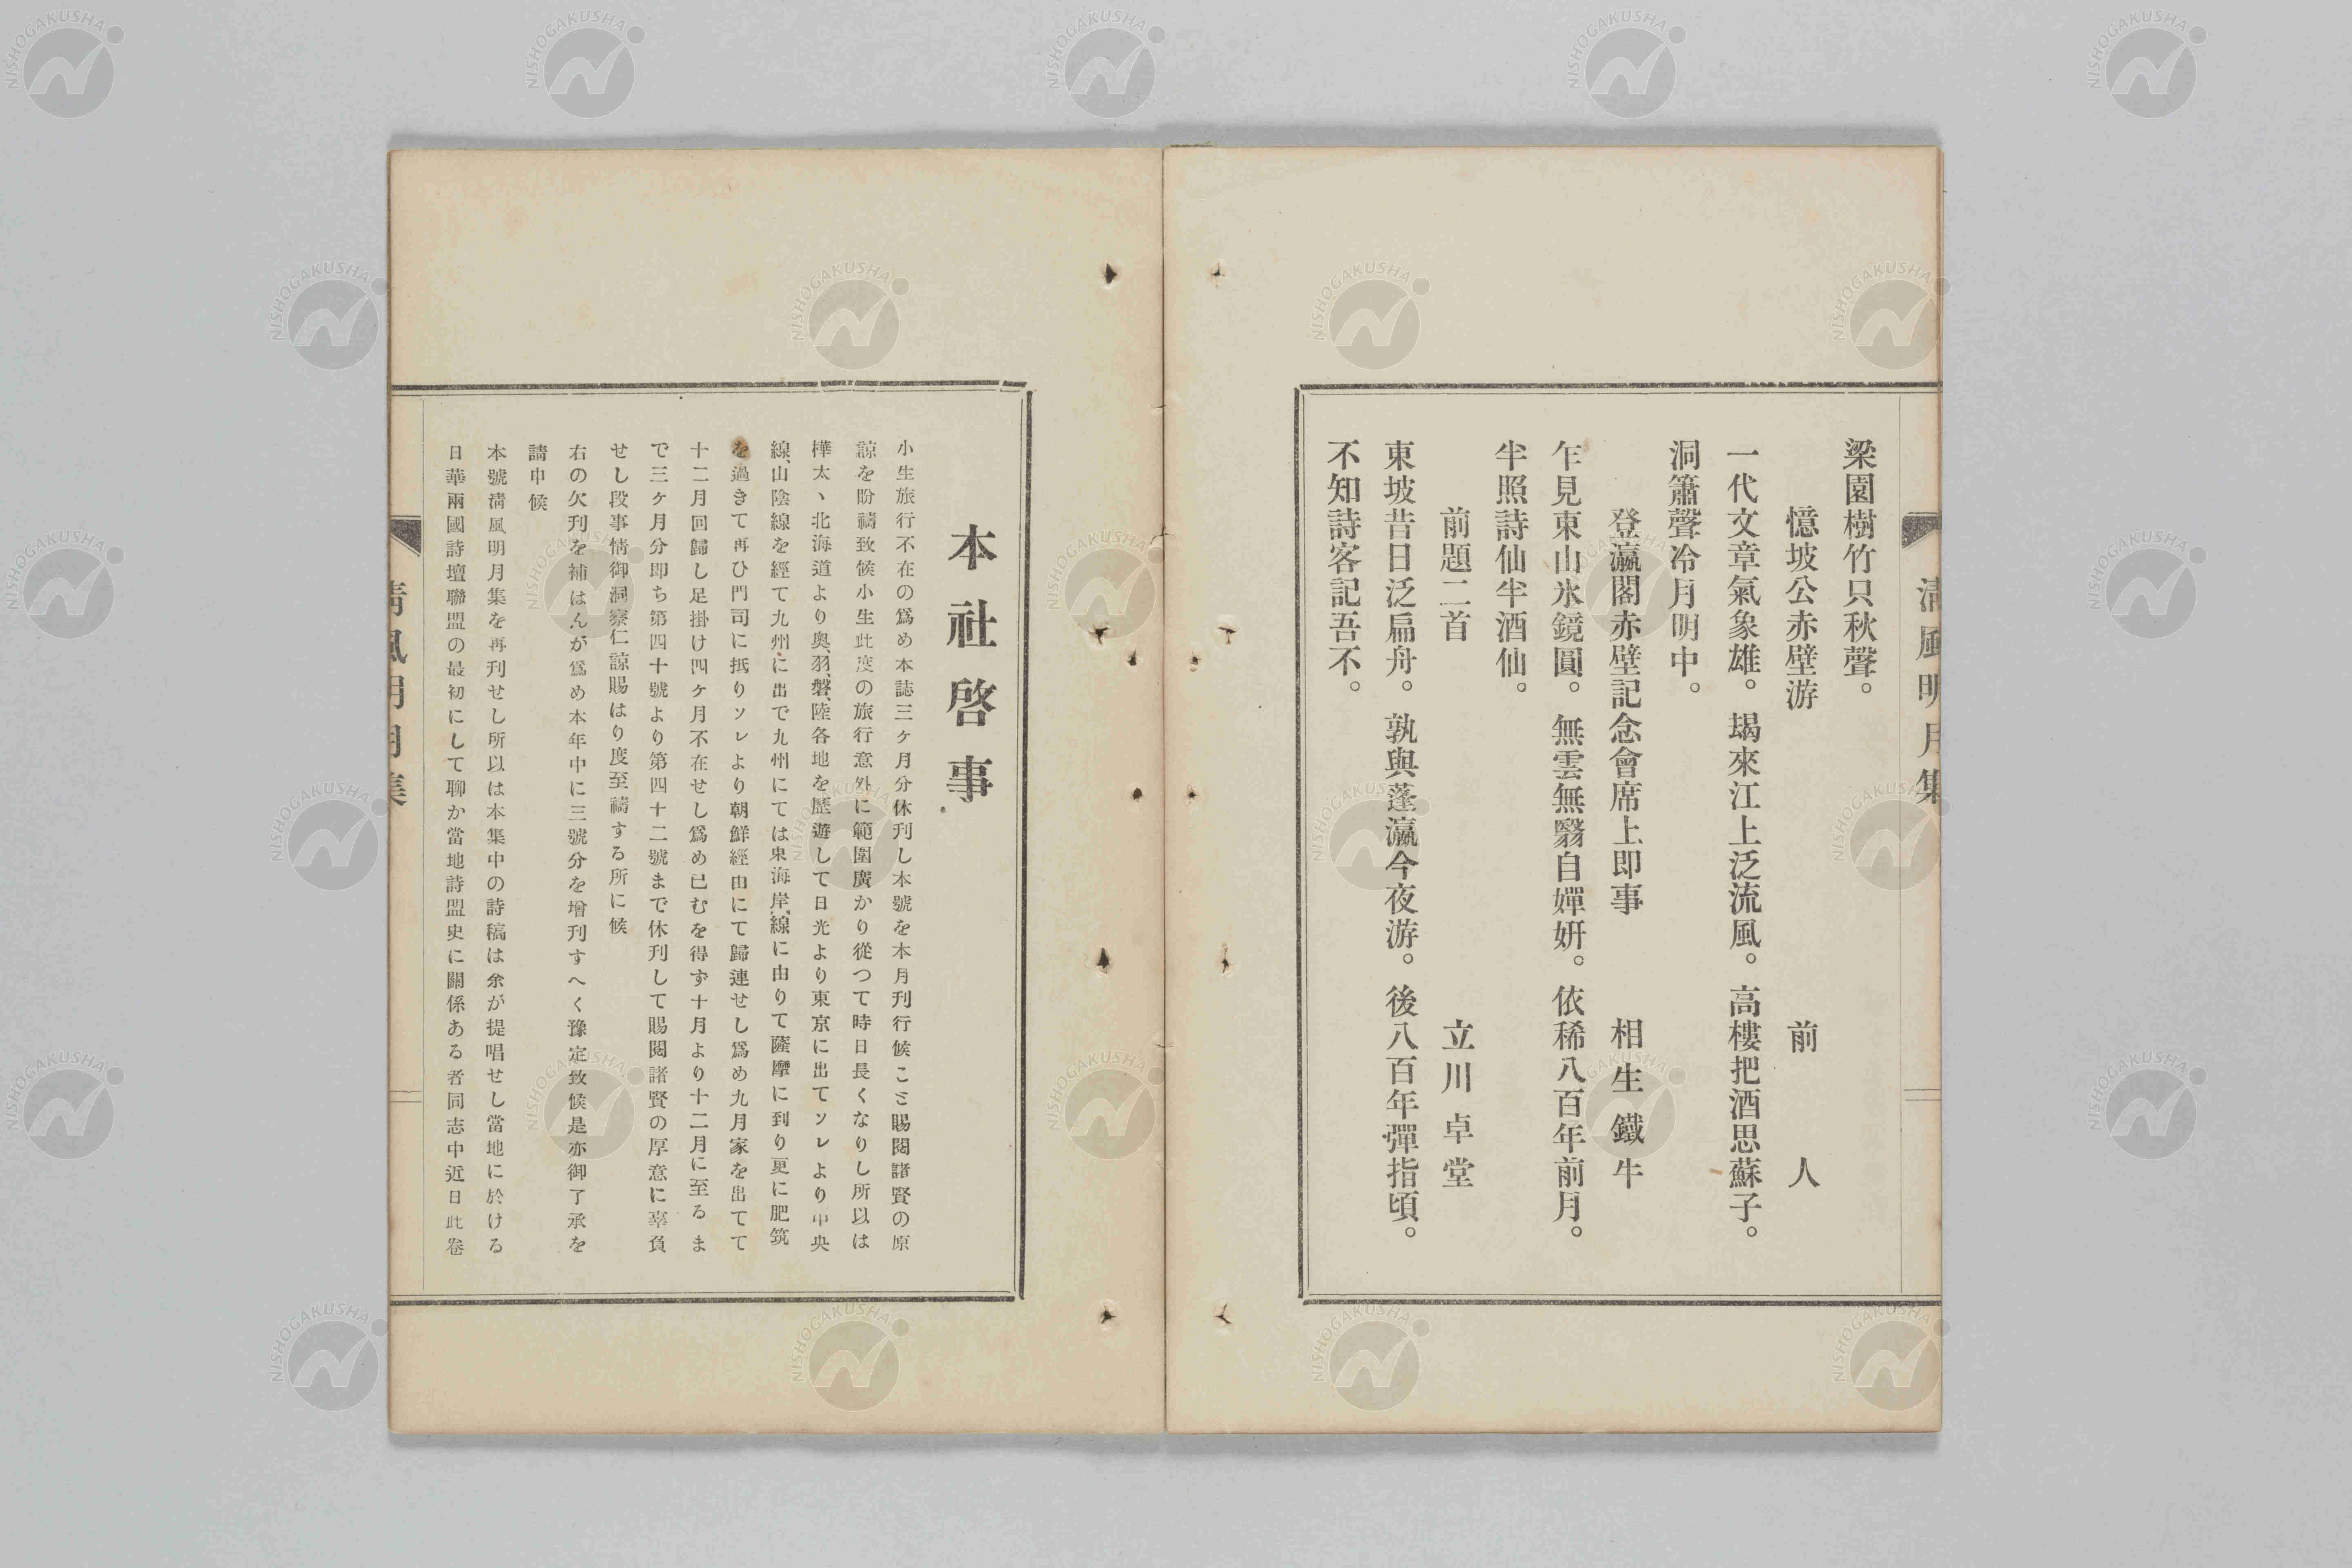 清風明月集
梁園樹竹只秋聲。
憶坡公赤壁游　前人
一代文章氣象雄。朅來江上泛流風。高樓把酒思蘇子。
洞簫聲冷月明中。
登瀛閣赤壁記念會席上即事　相生鐵牛
乍見東山氷鏡圓。無雲無翳自嬋妍。依稀八百年前月。
半照詩仙半酒仙。
前題二首　立川卓堂
東坡昔日泛扁舟。孰與蓬瀛今夜游。後八百年彈指頃。
不知詩客記吾不。
本社啓事
小生旅行不在の爲め本誌三ヶ月分休刊し本號を本月刊行候こと賜閱諸賢の原
諒を盼禱致候小生此度の旅行意外に範圍廣かり從つて時日長くなりし所以は
樺太、北海道より奥、羽、磐、陸各地を歷遊して日光より東京に出てソレより中央
線、山陰線を經て九州に出で九州にては東海岸、線に由りて薩摩に到り更に肥筑
を過きて再ひ門司に抵りソレより朝鮮經由にて歸連せし爲め九月家を出てて
十二月回歸し足掛け四ヶ月不在せし爲め已むを得ず十月より十二月に至るま
で三ヶ月分即ち第四十號より第四十二號まで休刊して賜閱諸賢の厚意に辜負
せし段事情御洞察仁諒賜はり度至禱する所に候
右の欠刊を補はんが爲め本年中に三號分を增刊すへく豫定致候是亦御了承を
請申候
本號淸風明月集を再刊せし所以は本集中の詩稿は余が提唱せし當地に於ける
日華兩國詩壇聯盟の最初にして聊か當地詩盟史に關係ある者同志中近日此卷
清風明月集
NISHOGAKUSHA